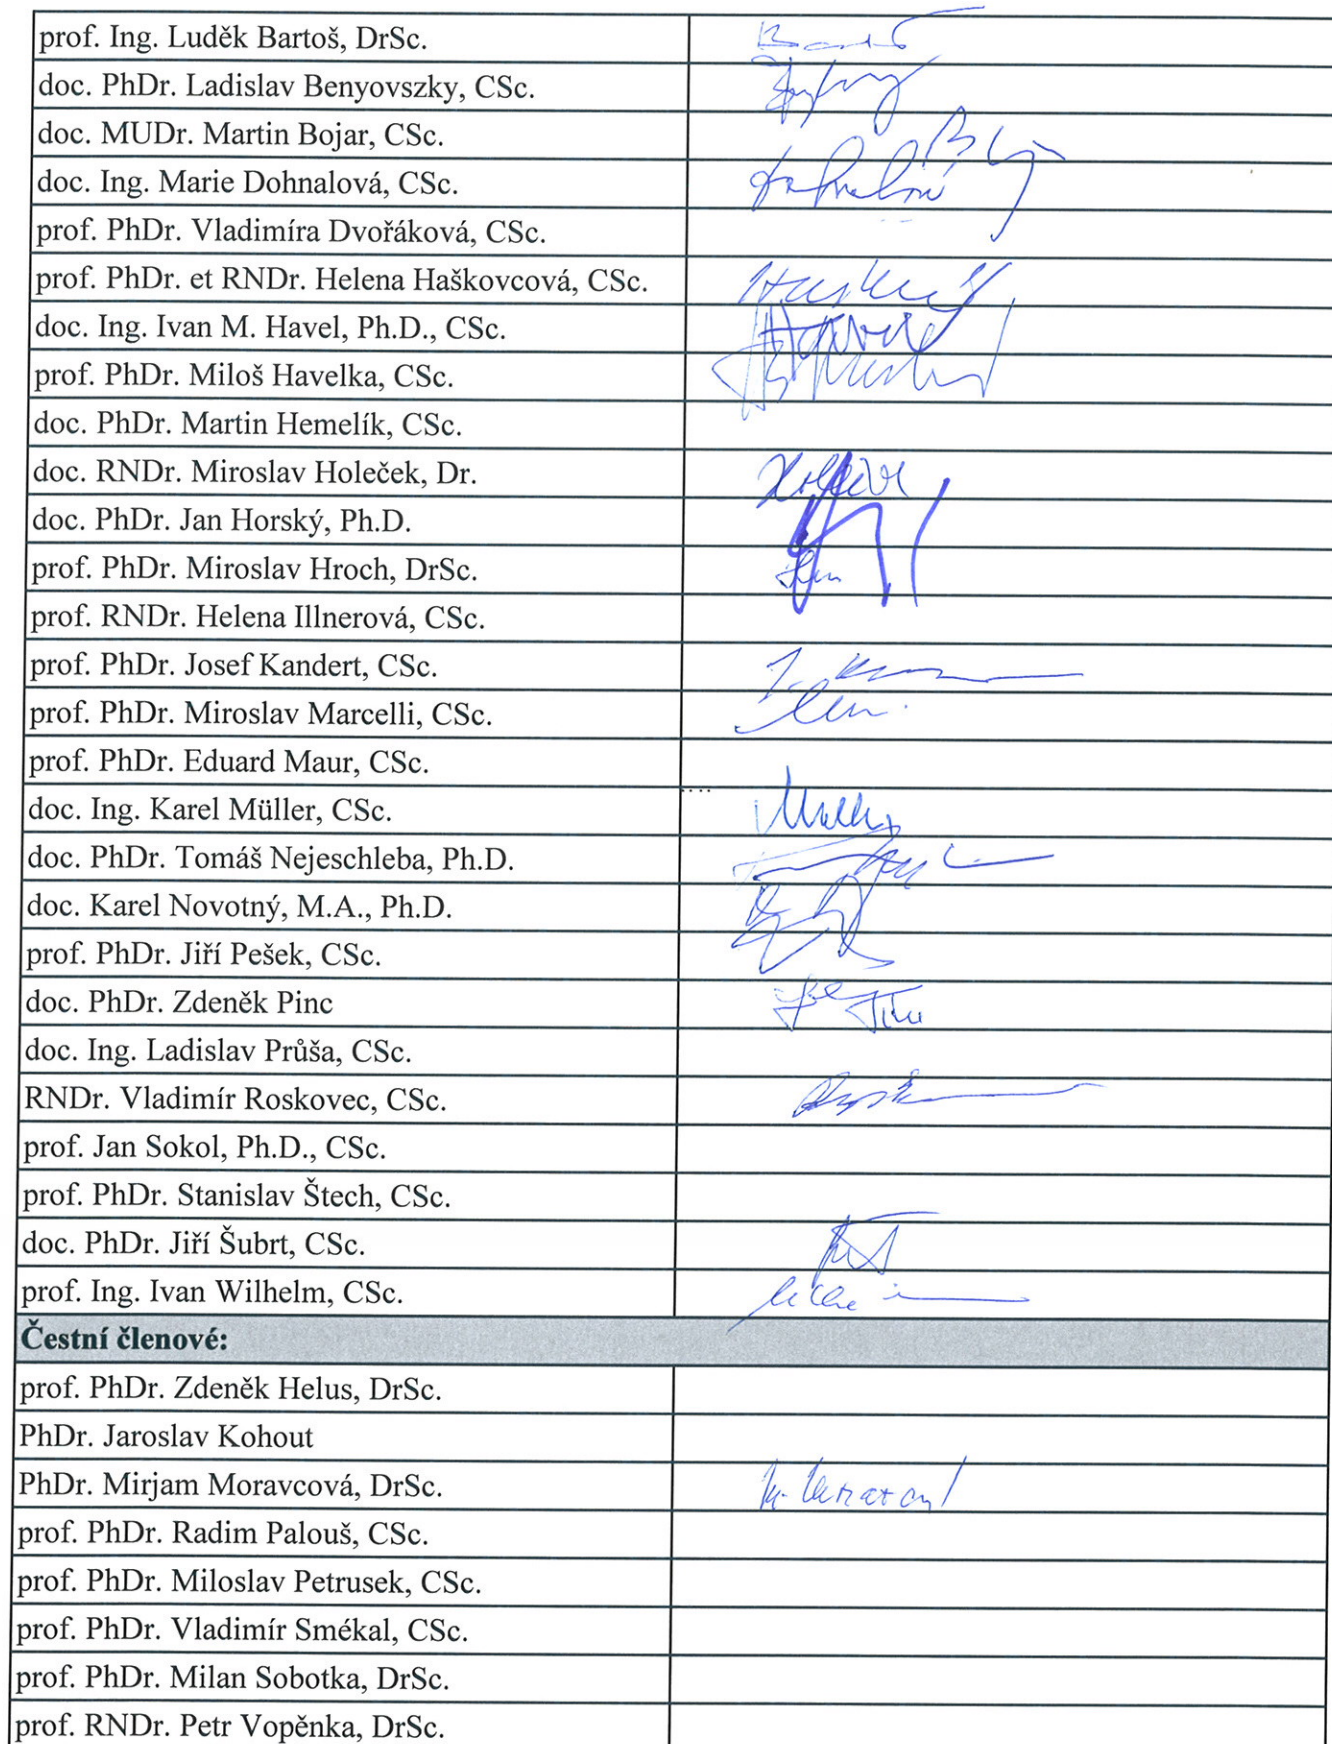 prof. Ing. Luděk Bartoš, DrSc.
doc. PhDr. Ladislav Benyovszky, CSc.
doc. MUDr. Martin Bojar, CSc.
doc. Ing. Marie Dohnalová, CSc.
prof. PhDr. Vladimíra Dvořáková, CSc.
prof. PhDr. et RNDr. Helena Haškovcová, CSc.
doc. Ing. Ivan M. Havel, Ph.D., CSc.
prof. PhDr. Miloš Havelka, CSc.
doc. PhDr. Martin Hemelík, CSc.
doc. RNDr. Miroslav Holeček, Dr.
doc. PhDr. Jan Horský, Ph.D.
prof. PhDr. Miroslav Hroch, DrSc.
prof. RNDr. Helena Illnerová, CSc.
prof. PhDr. Josef Kandert, CSc.
prof. PhDr. Miroslav Marcelli, CSc.
prof. PhDr. Eduard Maur, CSc.
doc. Ing. Karel Müller, CSc.
doc. PhDr. Tomáš Nejeschleba, Ph.D.
doc. Karel Novotný, M.A., Ph.D.
prof. PhDr. Jiří Pešek, CSc.
doc. PhDr. Zdeněk Pinc
doc. Ing. Ladislav Průša, CSc.
RNDr. Vladimír Roskovec, CSc.
prof. Jan Sokol, Ph.D., CSc.
prof. PhDr. Stanislav Štech, CSc.
doc. PhDr. Jiří Šubrt, CSc.
prof. Ing. Ivan Wilhelm, CSc.
Čestní členové:
prof. PhDr. Zdeněk Helus, DrSc.
PhDr. Jaroslav Kohout
PhDr. Mirjam Moravcová, DrSc.
prof. PhDr. Radim Palouš, CSc.
prof. PhDr. Miloslav Petrusek, CSc.
prof. PhDr. Vladimír Smékal, CSc.
prof. PhDr. Milan Sobotka, DrSc.
prof. RNDr. Petr Vopěnka, DrSc.